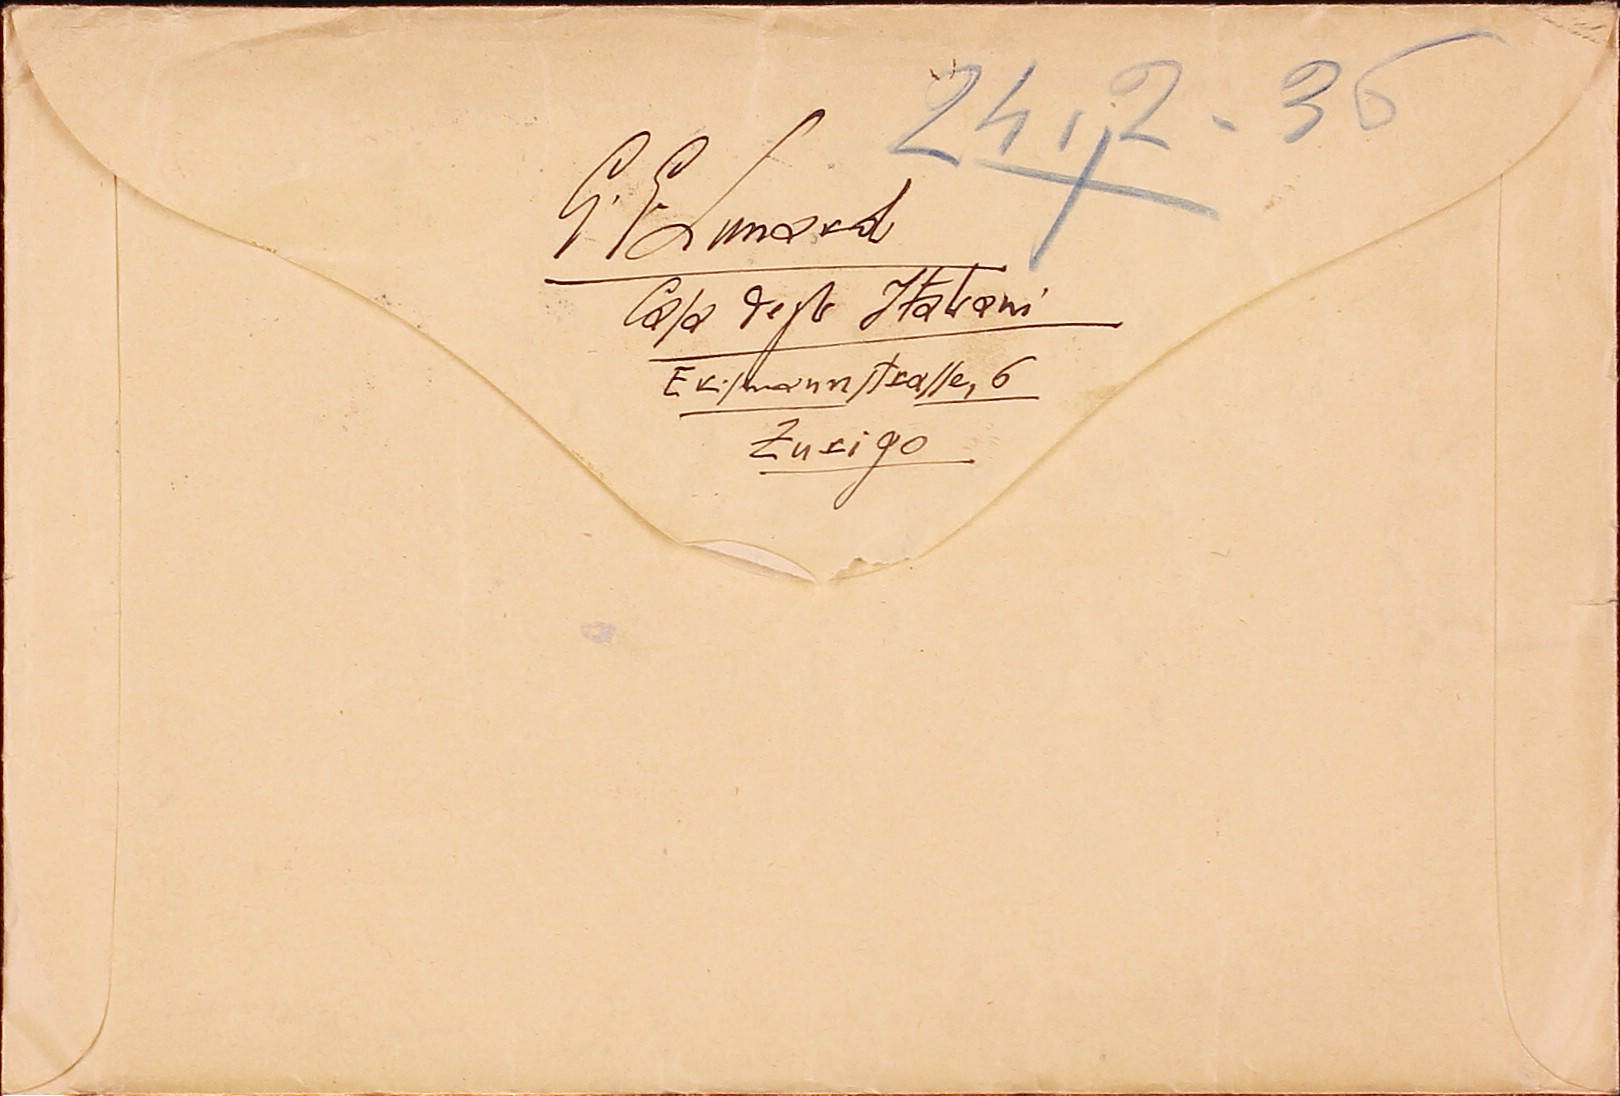 24.2-36
G. G. Lunardi
Casa degli Italiani
Erismannstrasse, 6
Zurigo